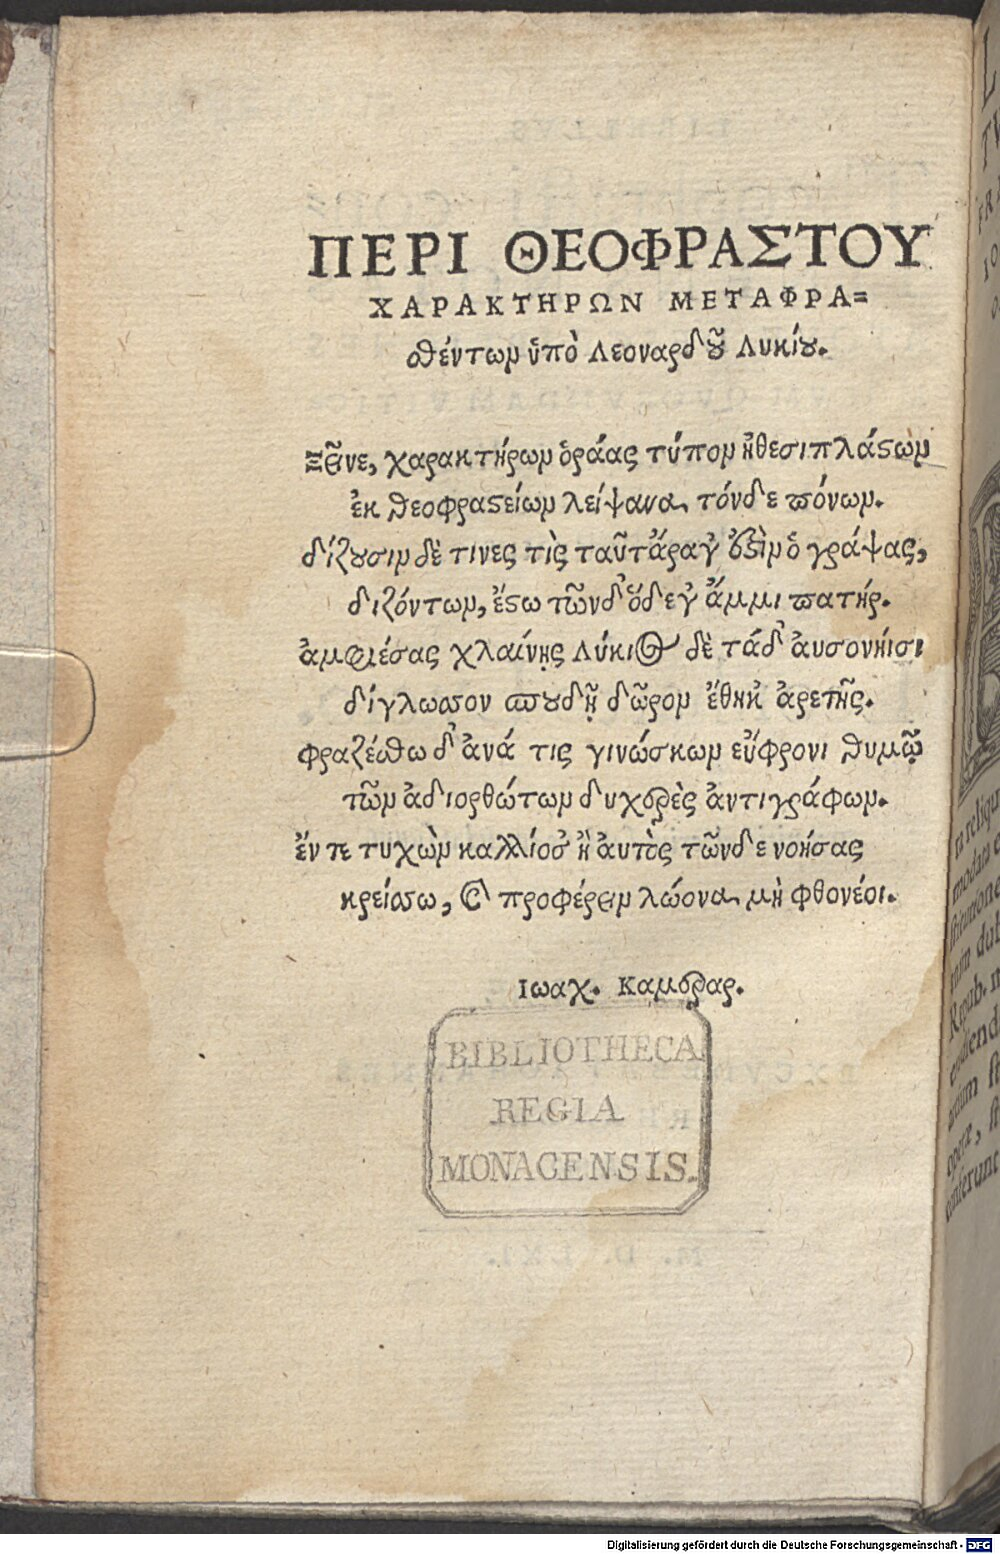 ΠΕΡΙ ΘΕΟΦΡΑΣΤΟΥ
ΧΑΡΑΚΤΗΡΩΝ ΜΕΤΑΦΡΑ=
σθέντων ὑπὸ Λεοναρδοῦ Λυκίου.
Ξεῖνε, χαρακτήρων ὁράας τύπον ἠθεσιπλάστων
ἐκ Θεοφραστείων λείψανα τόνδε πόνων.
δίζουσιν δὲ τινες τὶς ταῦτ' ἄραγ' ὁ γράψας,
διζόντων, ἔστω τῶνδ' ὅδεγ' ἄμμι πατήρ.
ἀμφιέσας χλαίνης Λύκιος δὲ τάδ' ἀυσονίησι
δίγλωσσον σπουδῇ δῶρον ἔθηκ' ἀρετῆς.
φραζέσθω δ' ἀνά τις γινώσκων εὔφρονι θυμῷ
τῶν ἀδιορθώτων δυχερὲς ἀντιγράφων.
ἔντε τυχὼν καλλίοσ' ἢ ἀυτὸς τῶνδε νοήσας
κρείσσω, καὶ προφέρειν λώονα μὴ φθονέοι.
Ιωαχ. Καμεραρ.
BIBLIOTHECA
REGIA
MONACENSIS.
Digitalisierung gefördert durch die Deutsche Forschungsgemeinschaft - DFG